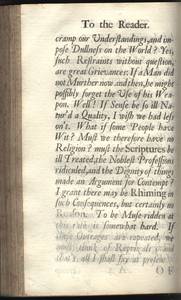 To the Reader.
cramp our Understandings, and im-
pose Dullness on the World? Yes,
such Restraints without question,
are great Grievances: If a Man did
not Murther now and then, he might
possibly forget the Use of his Wea-
pon. Well! If Sense be so ill Na-
tur'd a Quality, I wish we had less
on't. What if some People have
Wit? Must we therefore have no
Religion? must the Scriptures be
ill Treated, the Noblest Professions
ridiculed, and the Dignity of things
made an Argument for Contempt?
I grant there may be Rhiming in
such Consequences, but certainly no
Reason. To be Muse ridden at
this rate is somewhat hard. If
Outrages are repeated, we
must think of Reprisals
that's all I shall say at present
A OF